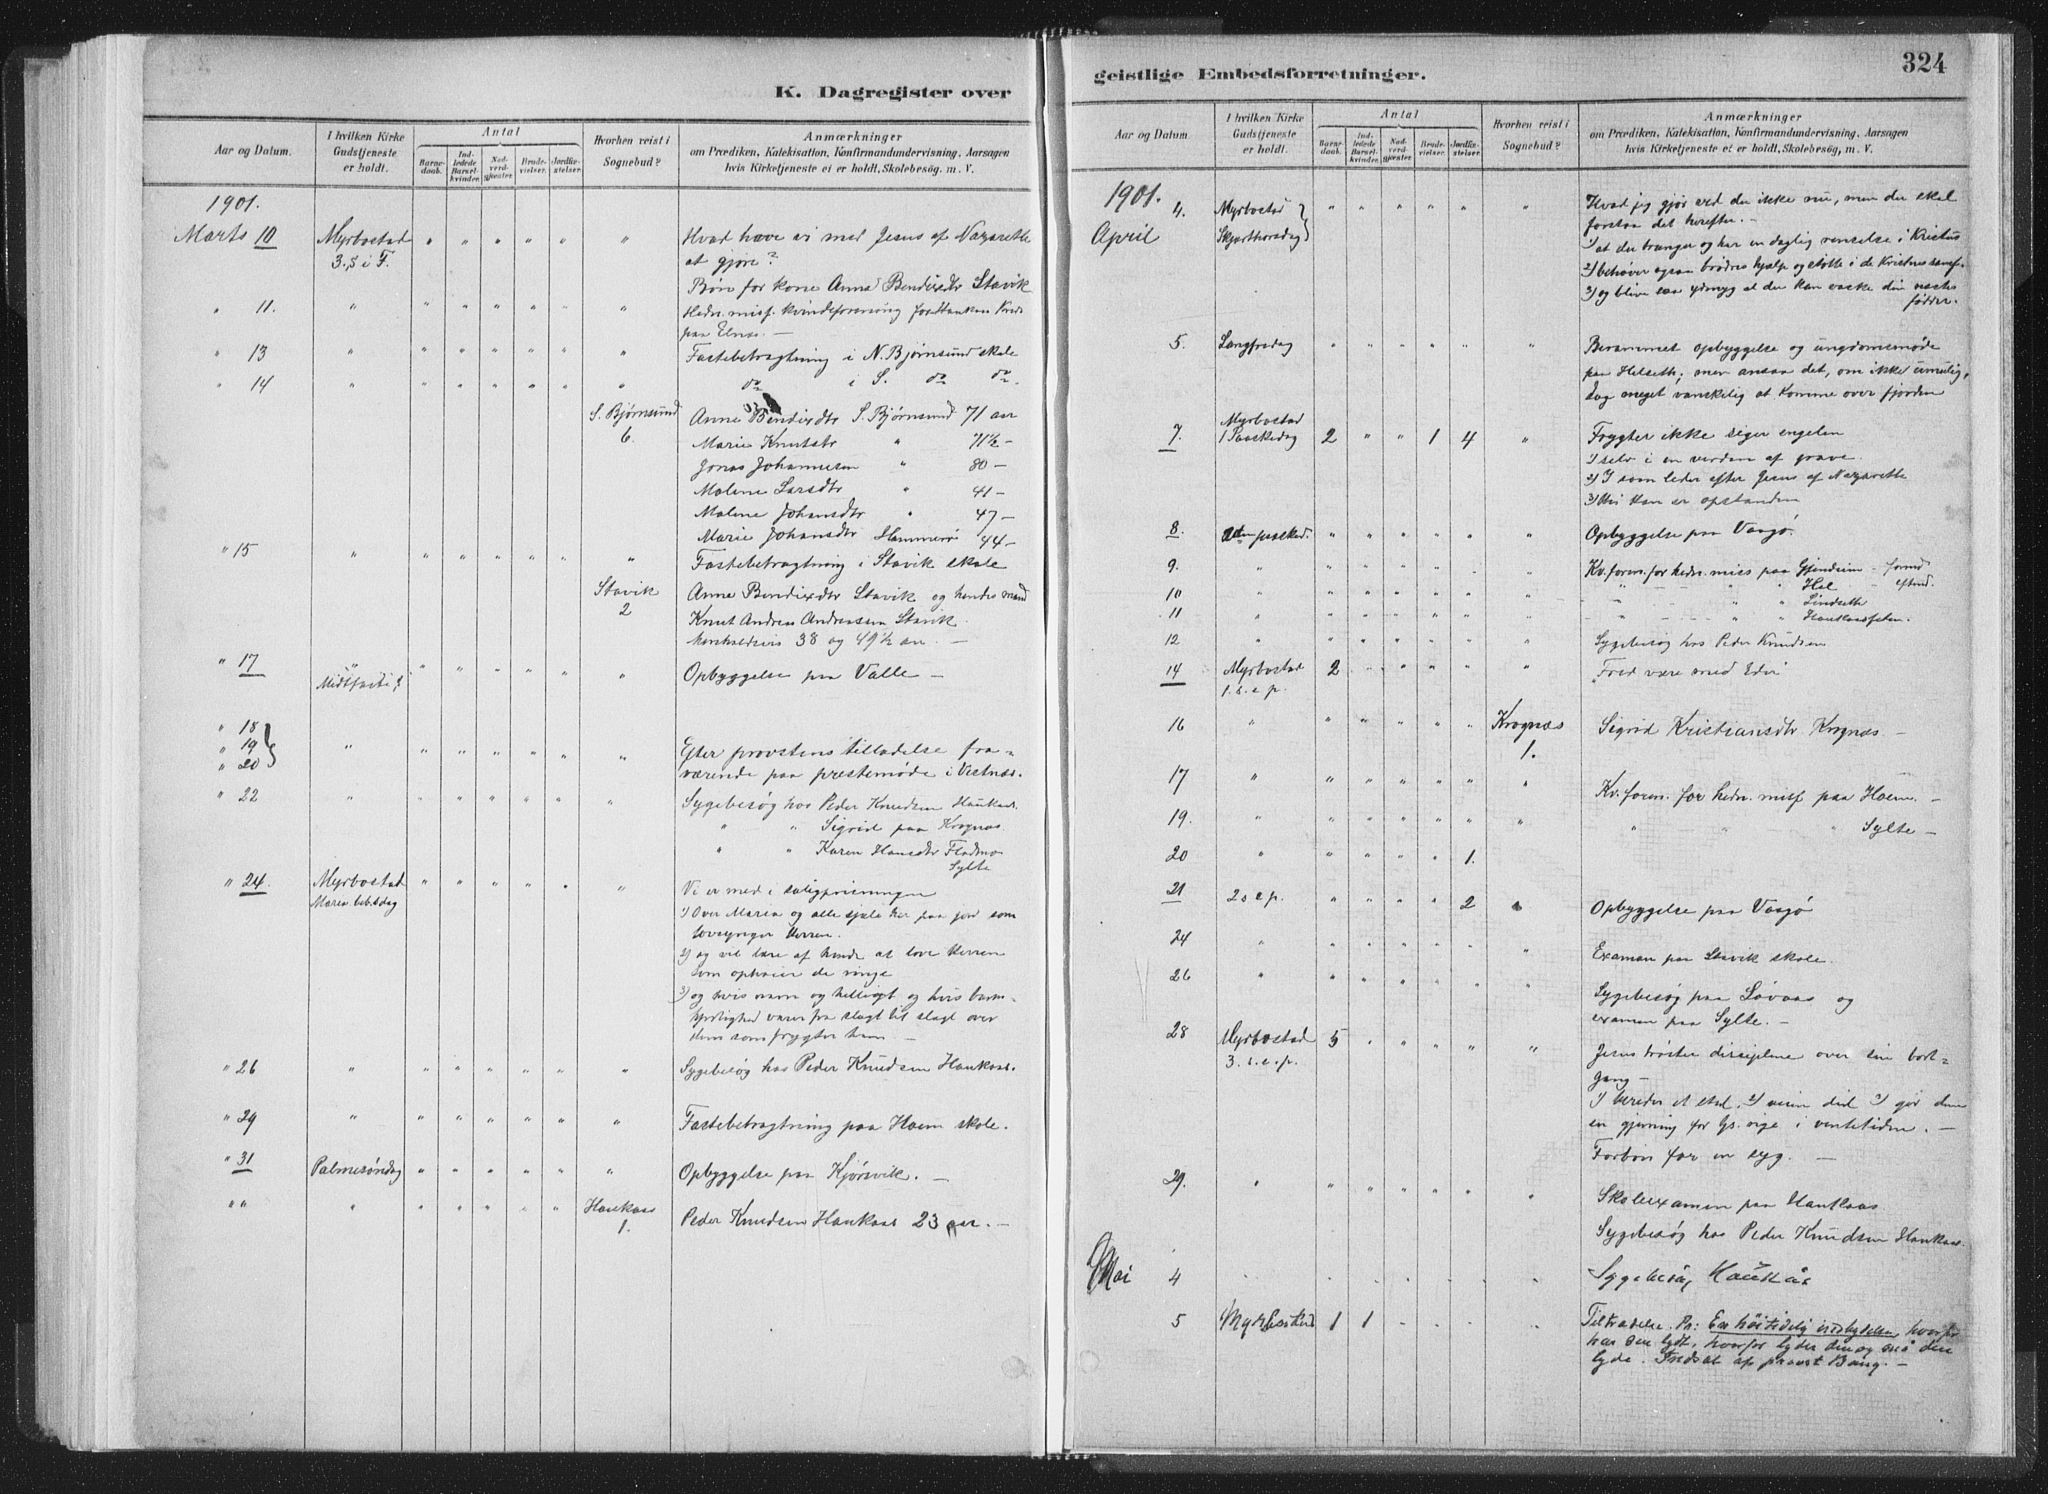 K. Dagregister over
Aar og Datum.
I hvilken Kirke Gudstjeneste er holdt.
Antal
Barne-daab.
Ind-ledede Barsel-kvinder.
Nad-verd-gjester.
Brude-vielser.
Jordfæ-stelser.
Hvorhen reist i Sognebud?
Anmærkninger
om Prædiken, Katekisation, Konfirmandundervisning, Aarsagen
hvis Kirketjeneste ei er holdt, Skolebesøg, m. V.
1901.
Marts 10 Myrbostad " " " " " " Hvad have vi med Jesus af Nazarette
3. s i F. at gjøre?
Bøn for kone Anna Bendixdtr Stavik
" 11. " " " " " " " Hedn. misf. kvindeforening for Haukaas Kreds
paa Elnæs. —
" 13 " " " " " " " Fastebetragtning i N. Bjørnsund skole
" 14 " " " " " " " do i S. do do.
S. Bjørnsund Anne Bendixdtr S. Bjørnsund 71 aar
6. Marie Knutsdtr " 71½ —
Jonas Johannesen " 80 —
Malene Larsdtr " 41 —
Malene Johansdtr " 47 —
Marie Johansdtr Hammerø 44 —
" 15 " " " " " " " Fastebetragtning i Stavik skole
Stavik Anne Bendixdtr Stavik og hendes mand
2 Knut Andreas Andreassen Stavik
henholdsvis 38 og 49½ aar. —
" 17 " " " " " " " Opbyggelse paa Valle —
Midtfaste
" 18
" 19 " " " " " " " Efter provstens tilladelse fra-
" 20 værende paa prestemøde i Vestnæs.
" 22 " " " " " " " Sygebesøg hos Peder Knudsen Haukaas.
" " Sigrid paa Krognæs
" " Karen Hansdtr Fladmo
Sylte
" 24. Myrbostad " " " " " " Vi er med i saligprisningen
Maria beb.dag 1) Over Maria og alle sjæle her paa jord som
lovsynger Herren.
2) og vil lære af hende at love Herren
som ophøier de ringe
3) og hvis navn og helligt og hvis barm-
hjertighed varer fra slægt til slægt over
dem som frygter ham —
" 26 " " " " " " " Sygebesøg hos Peder Knudsen Haukaas.
" 29 " " " " " " " Fastebetragtning paa Hoem skole.
" 31 Palmesøndag " " " " " " Opbyggelse paa Kjørsvik. —
" " " " " " " " Haukaas Peder Knudsen Haukaas 23 aar. —
1.
geistlige Embedsforretninger.
324
Aar og Datum
I hvilken Kirke Gudstjeneste er holdt.
Antal
Barne-daab.
Ind-ledede Barsel-kvinder.
Nad-verd-gjester.
Brude-vielser.
Jordfæ-stelser.
Hvorhen reist i Sognebud?
Anmærkninger
om Prædiken, Katekisation, Konfirmandundervisning, Aarsagen
hvis Kirketjeneste ei er holdt, Skolebesøg, m. V.
1901.
April 4. Myrbostad " " " " " " Hvad jeg gjør ved du ikke nu, men du skal
Skjærthorsdag forstaa det herefter. —
1) at du trænger og har en daglig renselse i Kristus
2) behøver ogsaa brødres hjælp og støtte i de Kristnes samf.
3) og blive saa ydmyg at du kan vaske din næstes
fødder.
5. Langfredag " " " " " " Berammet opbyggelse og ungdomsmøde
paa Helseth, men ansaa det, om ikke umulig,
dog meget vanskelig at komme over fjorden
7. Myrbostad 2 " " 1 4 " Frygter ikke siger engelen
1 Paaskedag 1) selv i en verden af grave.
2) I som leder efter Jesus af Nazarette
3) thi han er opstanden
8. 2den paasked. " " " " " " Opbyggelse paa Vaagø.
9. " " " " " " " Kv. foren. for hedn. miss paa Gjendeim - formd.
10 " " " " " " " " " Hol - eftmd.
11 " " " " " " " " " Lindseth
" " Haukaasfeten.
12 " " " " " " " Sygebesøg hos Peder Knudsen
14 Myrbostad 2 " " " " " Fred være med Eder
1. s. e p.
16 " " " " " " Krognæs Sigrid Kristiansdtr Krognæs —
1.
17 " " " " " " " Kv. foren. for hedn. misf paa Hoem. —
19. " " " " " " " " " " Sylte —
20 " " " " " 1.
21 2 s e p. " " " " 2 " Opbyggelse paa Vaagø
24 " " " " " " " Examen paa Stavik skole.
26 " " " " " " " Sygebesøg paa Løvaas og
examen paa Sylte. —
28 Myrbostad 5 " " " " " Jesus trøster disciplene over sin bort-
3. s. e. p. gang —
1) bereder et sted, 2) veien did 3) gir dem
en gjerning for Gs. rige i ventetiden. —
Forbøn for en syg. —
29. " " " " " " " Skoleexamen paa Haukaas
Sygebesøg hos Peder Knudsen Haukaas.
Mai 4 " " " " " " " Sygebesøg Haukås
5 Myrbostad 1 1 - - - " Tiltrædelse. Pr: En høitidelig indbydelse, hvorfor
har den lydt, hvorfor lyder den og må den
lyde. Indsat af provst Bang. —